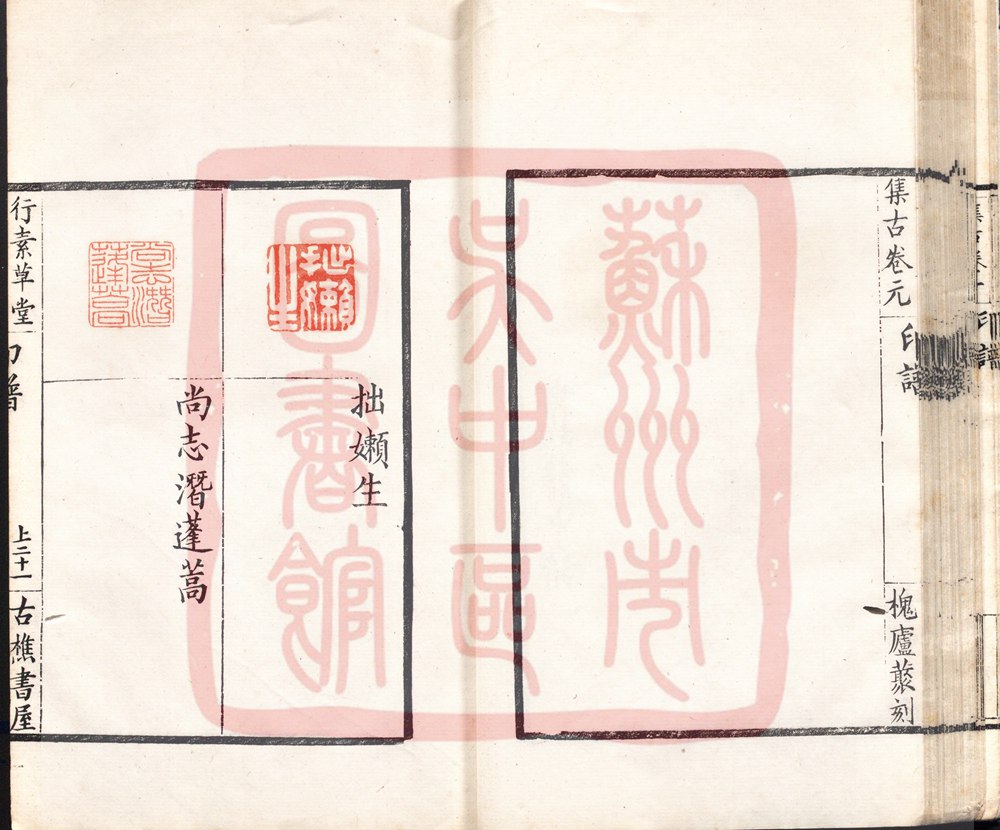 集古卷元
印譜
槐廬蕞刻
蘇州市
吳中區
圖書館
拙嬾生
拙嬾生
尚志潛蓬蒿
尚志潛蓬蒿
行素草堂
印譜
上二十一
古樵書屋